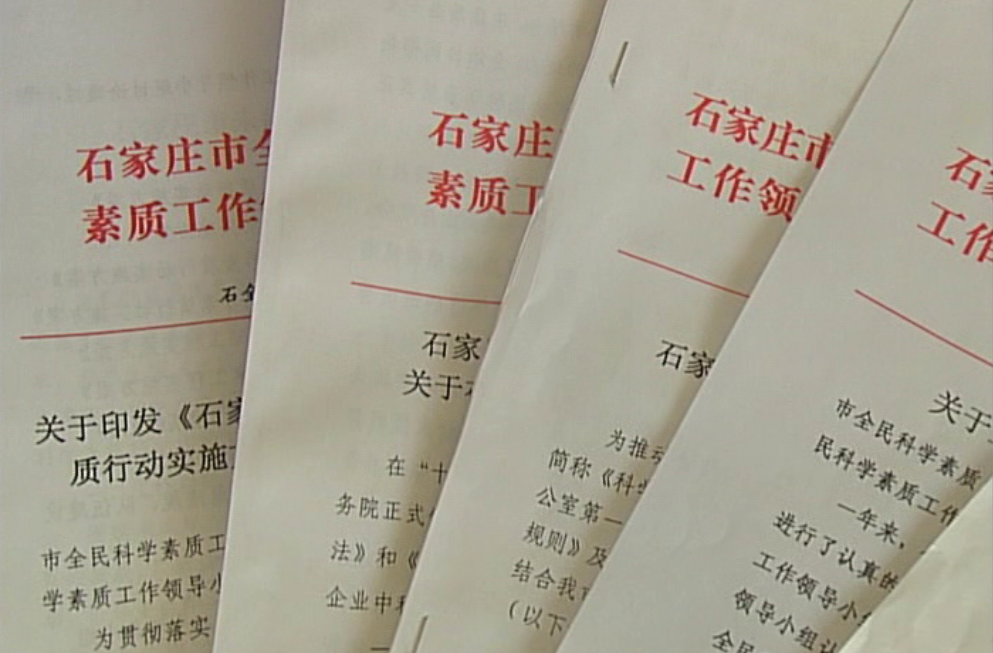 石家庄市全
素质工作
石全
关于印发《石家
质行动实施
市全民科学素质工
学素质工作领导小
为贯彻落实
石家庄
素质工
石家
关于
在“十
务院正式
法》和《
企业中科
石家庄市
工作领
石家
为推动
简称《科学
公室第一
规则》及
结合我市
（以下
石家
工作
关于
市全民科学素质
民科学素质工作
一年来，
进行了认真的
工作领导小组
领导小组认
全民